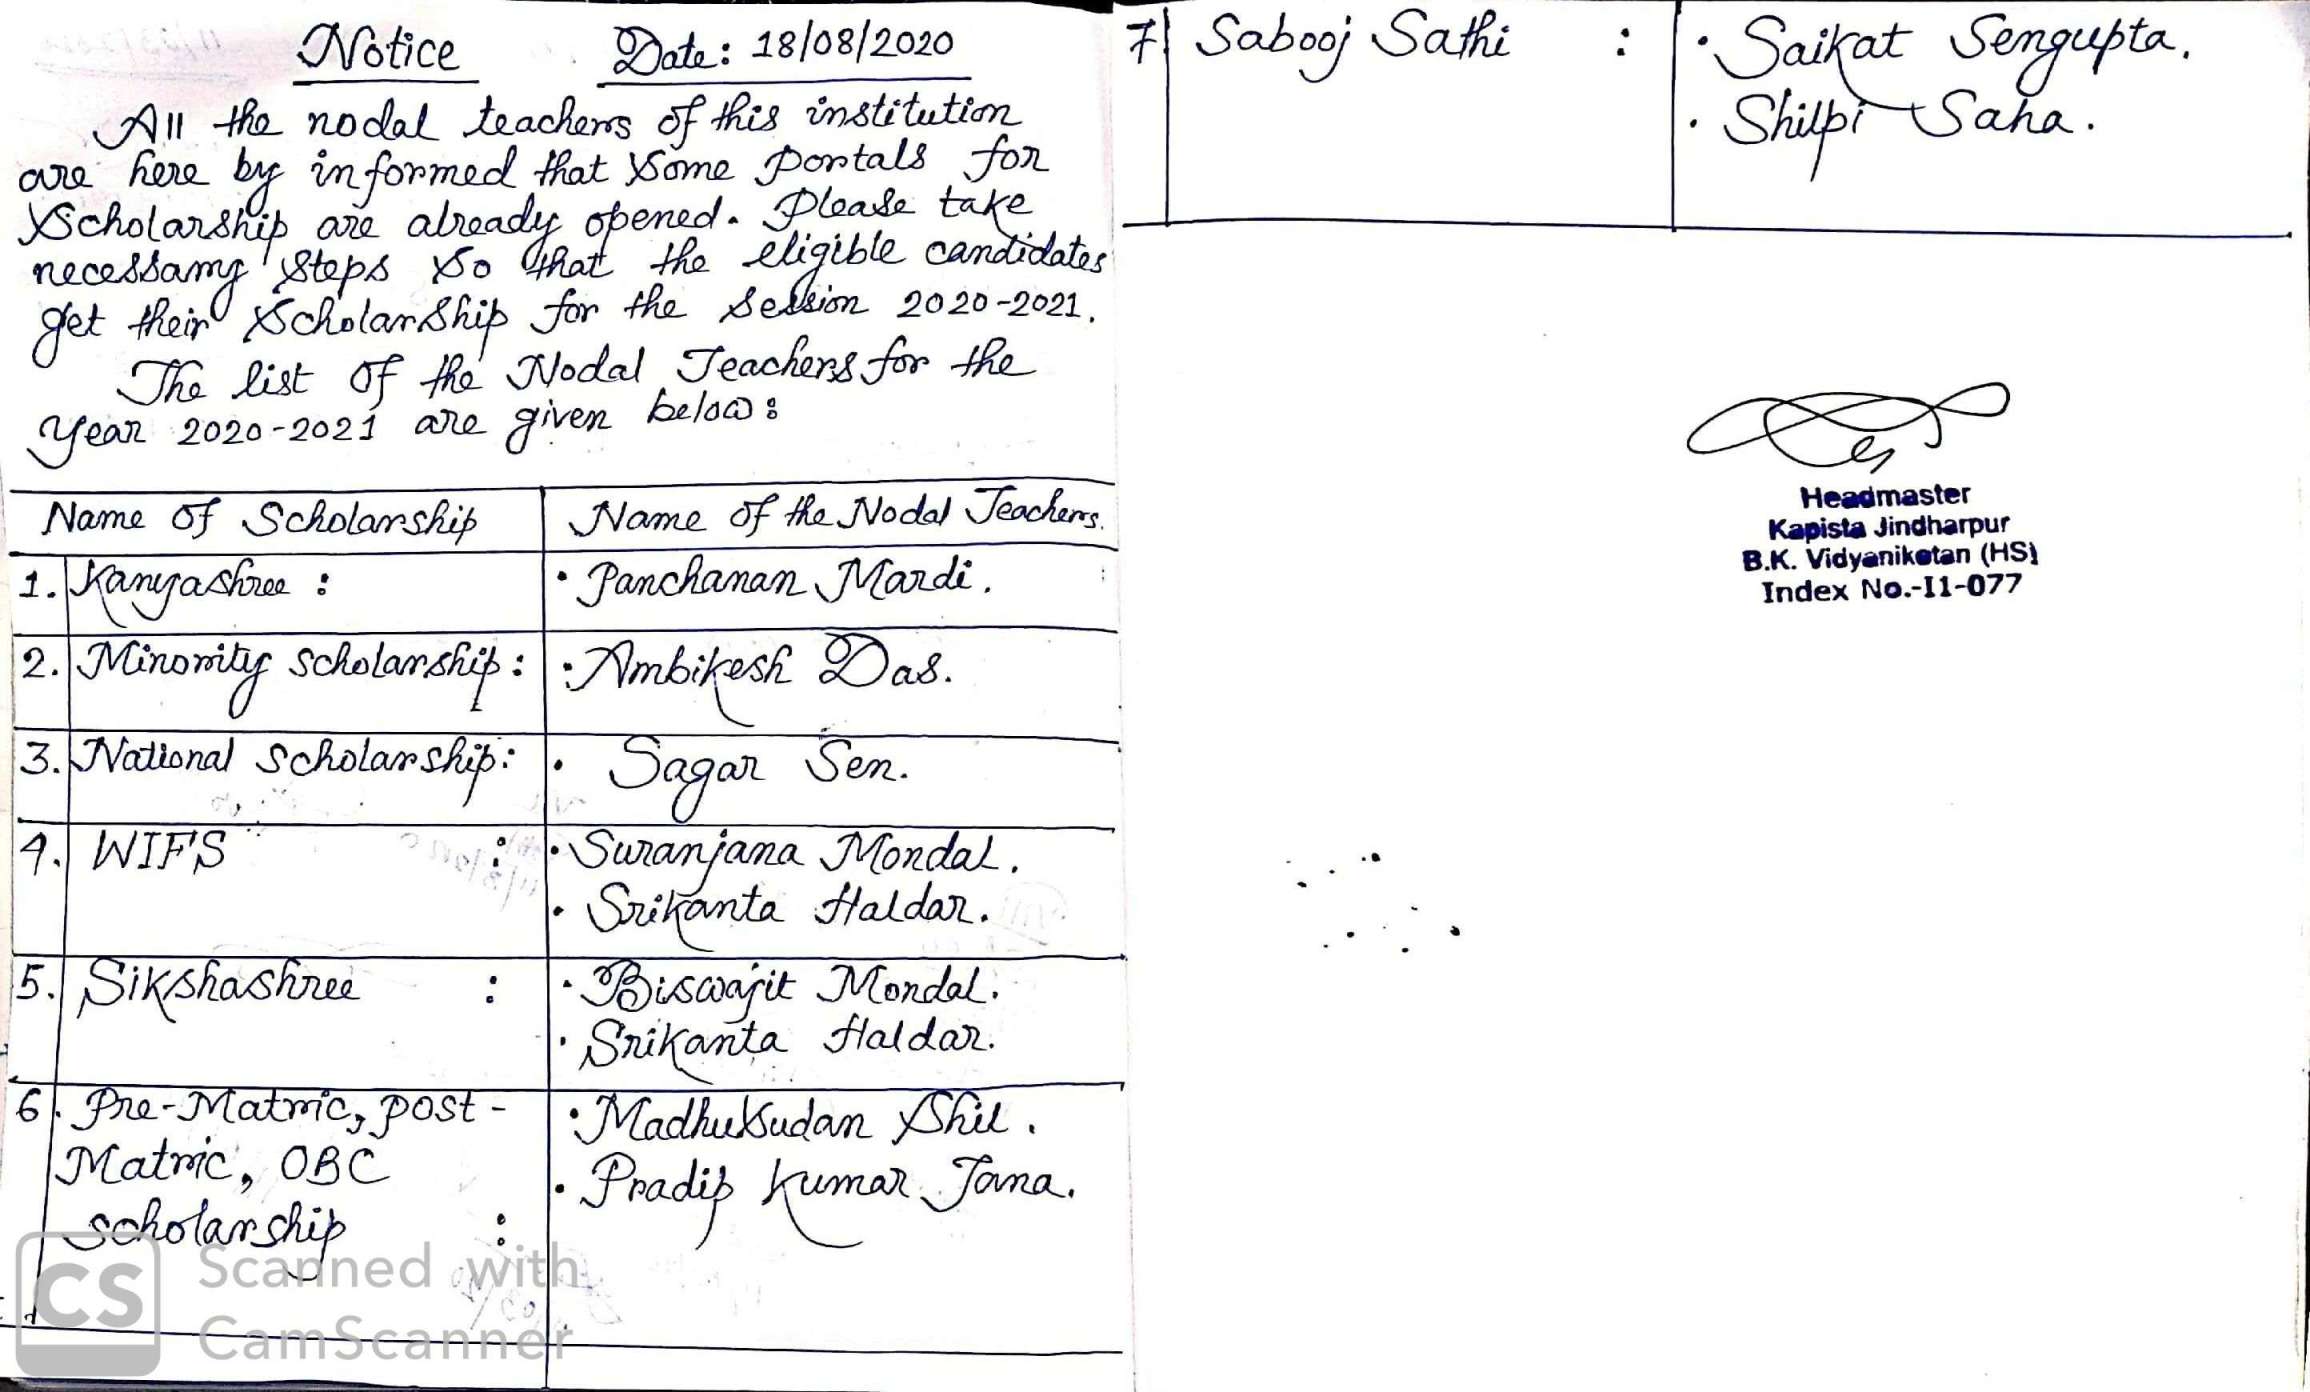 Notice Date: 18/08/2020
All the nodal teachers of this institution
are here by informed that some portals for
Scholarship are already opened. Please take
necessary steps so that the eligible candidates
get their Scholarship for the session 2020-2021.
The list of the Nodal Teachers for the
Year 2020-2021 are given below:
Name of Scholarship Name of the Nodal Teachers.
1. Kanyashree : • Panchanan Mardi.
2. Minority scholarship : • Ambikesh Das.
3. National scholarship : • Sagar Sen.
4. WIFS : • Suranjana Mondal.
• Srikanta Haldar.
5. Sikshashree : • Biswajit Mondal.
• Srikanta Haldar.
6. Pre-Matric, post- • Madhusudan Shil.
Matric, OBC • Pradip Kumar Jana.
scholarship :
Scanned with
CamScanner
CS
7 Sabooj Sathi : • Saikat Sengupta.
• Shilpi Saha.
Headmaster
Kapista Jindharpur
B.K. Vidyaniketan (HS)
Index No.-I1-077